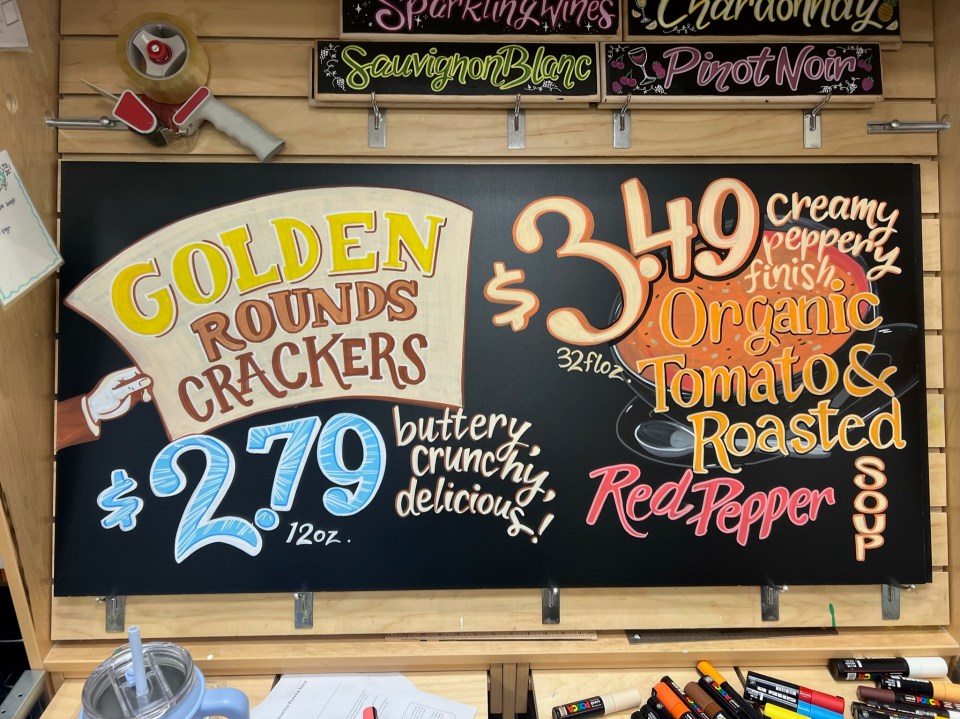 Sparkling Wines
Chardonnay
Sauvignon Blanc
Pinot Noir
GOLDEN
ROUNDS
CRACKERS
$2.79
12oz.
buttery,
crunchy,
delicious!
$3.49
32floz.
creamy
peppery
finish
Organic
Tomato &
Roasted
Red Pepper
SOUP
POSCA